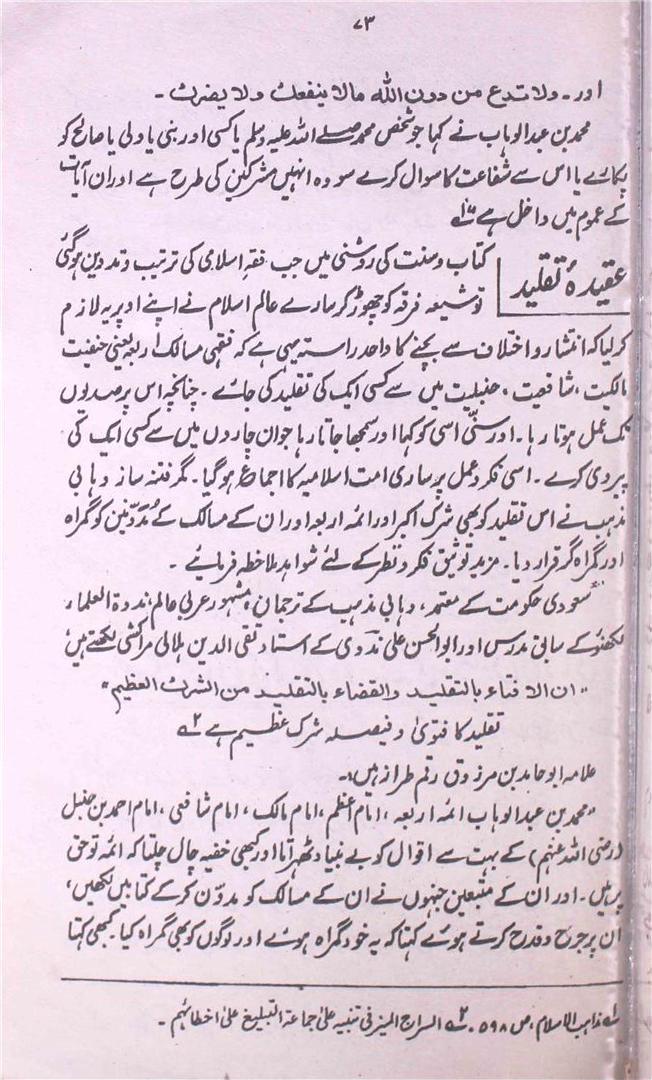 ۷۳
اور۔ ولا تدع من دون الله مالا ينفعك ولا يضرك ۔
محمد بن عبدالوہاب نے کہا جو شخص محمد صلے اللہ علیہ وسلم یا کسی اور نبی یا ولی یا صالح کو
پکارے یا اس سے شفاعت کا سوال کرے سو وہ انہیں مشرکین کی طرح ہے اور ان آیات
کے عموم میں داخل ہے ۱ے
عقیدۂ تقلید
کتاب و سنت کی روشنی میں جب فقہ اسلامی کی ترتیب و تدوین ہوگئی
تو شیعہ فرقہ کو چھوڑ کر سارے عالم اسلام نے اپنے اوپر یہ لازم
کر لیا کہ انتشار و اختلاف سے بچنے کا واحد راستہ یہی ہے کہ فقہی مسالک اربعہ یعنی حنفیت
مالکیت، شافعیت، حنبلیت میں سے کسی ایک کی تقلید کی جائے ۔ چنانچہ اس پر صدیوں
تک عمل ہوتا رہا ۔ اور سنّی اسی کو کہا اور سمجھا جاتا رہا جو ان چاروں میں سے کسی ایک کی
پیروی کرے ۔ اسی فکر و عمل پر ساری امت اسلامیہ کا اجماع ہوگیا۔ مگر فتنہ ساز وہابی
مذہب نے اس تقلید کو بھی شرک اکبر اور ائمہ اربعہ اور ان کے مسالک کے مُدَوِّنین کو گمراہ
اور گمراہ گر قرار دیا۔ مزید توثیق فکر و نظر کے لئے شواہد ملاحظہ فرمائیے ۔
سعودی حکومت کے معتمد، وہابی مذہب کے ترجمان، مشہور عربی عالم، ندوۃ العلماء
لکھنؤ کے سابق مدرس اور ابوالحسن علی ندوی کے استاد تقی الدین ہلالی مراکشی لکھتے ہیں
"ان الافتاء بالتقليد والقضاء بالتقليد من الشرك العظيم"
تقلید کا فتویٰ و فیصلہ شرک عظیم ہے ۲ے
علامہ ابو حامد بن مرزوق رقم طراز ہیں۔
"محمد بن عبدالوہاب ائمہ اربعہ، امام اعظم، امام مالک، امام شافعی، امام احمد بن حنبل
(رضی اللہ عنہم) کے بہت سے اقوال کو بے بنیاد ٹھہراتا اور کبھی خفیہ چال چلتا کہ ائمہ تو حق
پر ہیں ۔ اور ان کے متبعین جنہوں نے ان کے مسالک کو مدوّن کر کے کتابیں لکھیں،
ان پر جرح و قدح کرتے ہوئے کہتا کہ یہ خود گمراہ ہوئے اور لوگوں کو بھی گمراہ کیا۔ کبھی کہتا
۱ے مذاہب الاسلام، ص ۵۹۸۔ ۲ے السراج المنیر فی تنبیہ علیٰ جماعۃ التبلیغ علیٰ اخطائہم ۔